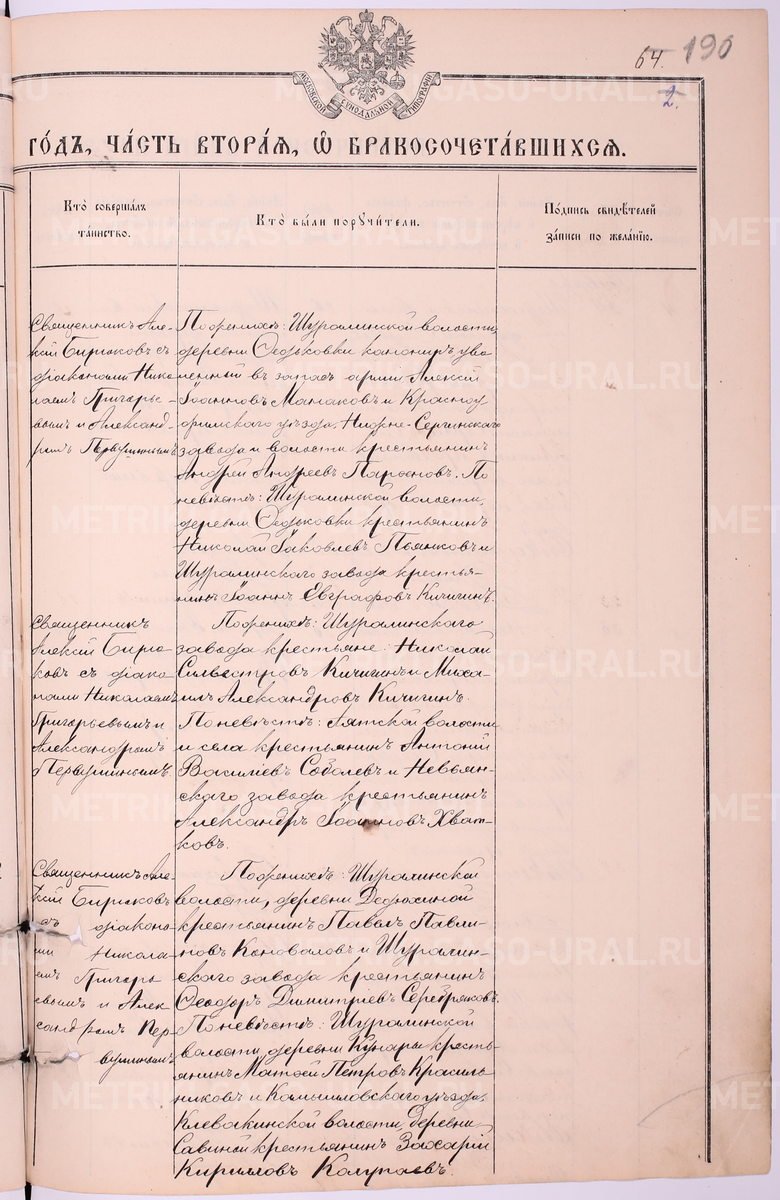 64. 190
2.
МОСКОВСКОЙ СУНОДАЛЬНОЙ ТИПОГРАФІИ
ГО́ДЪ, ЧА́СТЬ ВТОРА́Я, Ѡ҆ БРАКОСОЧЕТА́ВШИХСЯ.
Кто̀ соверша́лъ
та́инство.
Кто̀ бы́ли порꙋчи́тели.
По́дпись свидѣ́телей
за́писи по жела́нїю.
Священникъ Але-
ксій Бирюковъ съ
діаконами Нико-
лаемъ Григорье-
вымъ и Александ-
ромъ Первушинымъ
По женихѣ: Шуралинской волости,
деревни Ѳедьковки канониръ уво
ленный въ запасъ арміи Алексій
Іоанновъ Манаковъ и Красноу
фимскаго уѣзда, Нижне-Сергинскаго
завода и волости крестьянинъ
Андрей Андреевъ Паранов. По
невѣстѣ: Шуралинской волости,
деревни Ѳедьковки крестьянинъ
Николай Іаковлевъ Пьянковъ и
Шуралинскаго завода крестья-
нинъ Іоаннъ Евграфовъ Кичигинъ.
Священникъ
Алексій Бирю
ковъ съ діако
нами Николаемъ
Григорьевымъ и
Александромъ
Первушинымъ.
По женихѣ: Шуралинскаго
завода крестьяне: Николай
Сильвестровъ Кичигинъ и Миха-
илъ Александровъ Кичигинъ.
По невѣстѣ: Аятской волости
и села крестьянинъ Антоній
Василіевъ Соболевъ и Невьян-
скаго завода крестьянинъ
Александръ Іоанновъ Хват-
ковъ.
Священникъ Але-
ксій Бирюковъ
съ діакона-
ми Никола
емъ Григорь
евымъ и Алек
сандромъ Пер-
вушинымъ
По женихѣ: Шуралинской
волости, деревни Дедюхиной
крестьянинъ Павелъ Павли-
новъ Коновалов и Шуралин-
скаго завода крестьянинъ
Ѳеодоръ Димитріевъ Серебряковъ.
По невѣстѣ: Шуралинской
волости, деревни Кунары кресть-
янинъ Матѳей Петровъ Красиль
никовъ и Камышловскаго уѣзда,
Клевакинской волости, деревни
Савиной крестьянинъ Захарій
Кирилловъ Колупаевъ.
METRIKI.GASO-URAL.RU